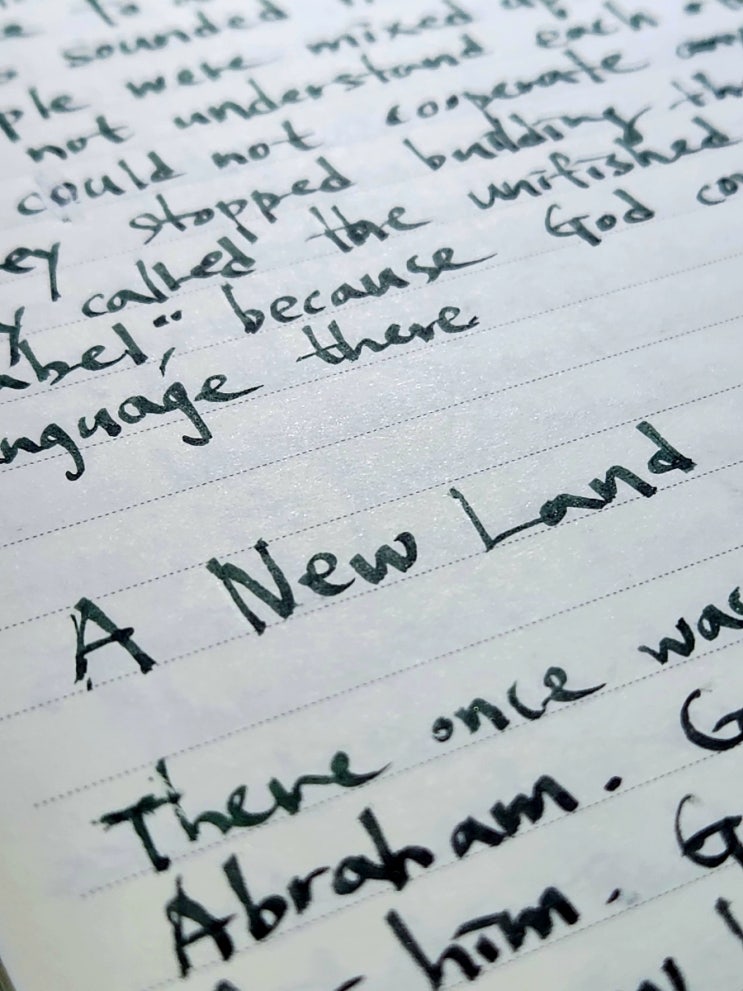 sounded
ple were mixed up
not understand each
could not cooperate and
ey stopped building the
y called the unifished
abel," because God con
nguage there
A New Land
There once was
Abraham. G
him. G